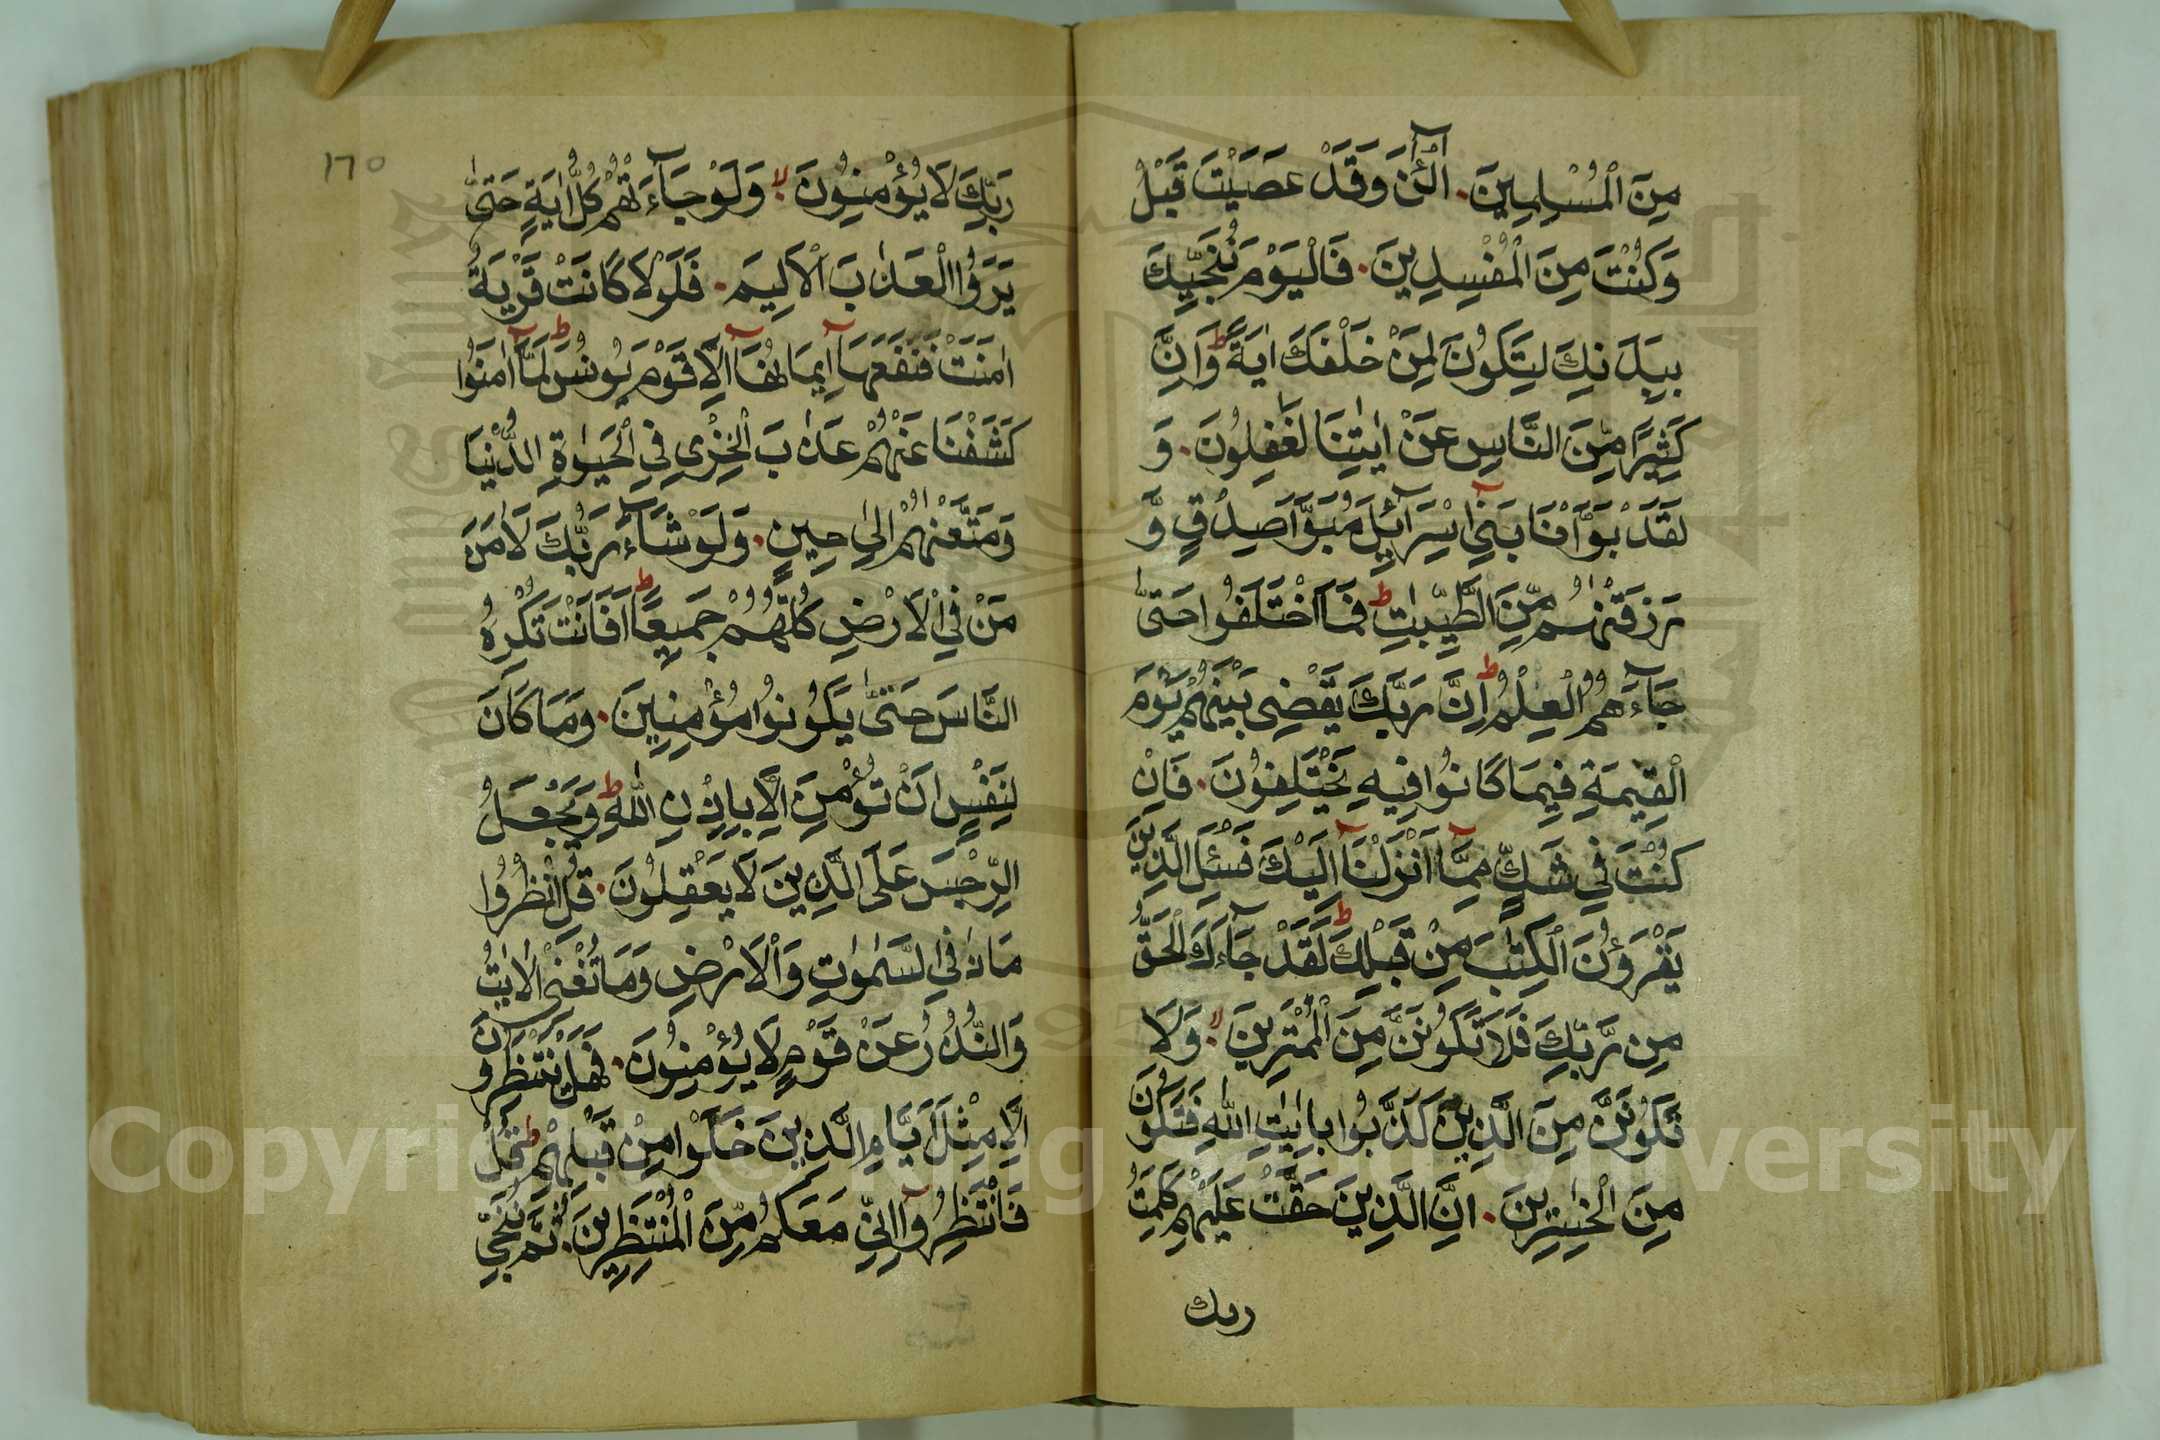 مِنَ الْمُسْلِمِينَ ۰ آلْـٰٔنَ وَقَدْ عَصَيْتَ قَبْلُ
وَكُنْتَ مِنَ الْمُفْسِدِينَ ۰ فَالْيَوْمَ نُنَجِّيكَ
بِبَدَنِكَ لِتَكُونَ لِمَنْ خَلْفَكَ اٰيَةً ط وَاِنَّ
كَثِيرًا مِّنَ النَّاسِ عَنْ اٰيٰتِنَا لَغٰفِلُونَ ۰ وَ
لَقَدْ بَوَّاْنَا بَنِىٓ اِسْرَآئِيلَ مُبَوَّاَ صِدْقٍ وَّ
رَزَقْنٰهُمْ مِّنَ الطَّيِّبٰتِ ط فَمَا اخْتَلَفُوا حَتّٰى
جَآءَهُمُ الْعِلْمُ ط اِنَّ رَبَّكَ يَقْضِى بَيْنَهُمْ يَوْمَ
الْقِيٰمَةِ فِيمَا كَانُوا فِيهِ يَخْتَلِفُونَ ۰ فَاِنْ
كُنْتَ فِى شَكٍّ مِمَّٓا اَنْزَلْنَٓا اِلَيْكَ فَسْـَٔلِ الَّذِينَ
يَقْرَءُونَ الْكِتٰبَ مِنْ قَبْلِكَ ط لَقَدْ جَآءَكَ الْحَقُّ
مِن رَّبِّكَ فَلَا تَكُونَنَّ مِنَ الْمُمْتَرِينَ ۰ لا وَلَا
تَكُونَنَّ مِنَ الَّذِينَ كَذَّبُوا بِاٰيٰتِ اللّٰهِ فَتَكُونَ
مِنَ الْخٰسِرِينَ ۰ اِنَّ الَّذِينَ حَقَّتْ عَلَيْهِمْ كَلِمَتُ
ربك
١٦٥
رَبِّكَ لَا يُؤْمِنُونَ ۰ لا وَلَوْ جَآءَتْهُمْ كُلُّ اٰيَةٍ حَتّٰى
يَرَوُا الْعَذٰابَ الْاَلِيمَ ۰ فَلَوْلَا كَانَتْ قَرْيَةٌ
اٰمَنَتْ فَنَفَعَهَٓا اِيمَانُهَٓا اِلَّا قَوْمَ يُونُسَ ط لَمَّٓا اٰمَنُوا
كَشَفْنَا عَنْهُمْ عَذٰابَ الْخِزْىِ فِى الْحَيٰوةِ الدُّنْيَا
وَمَتَّعْنٰهُمْ اِلٰى حِينٍ ۰ وَلَوْ شَآءَ رَبُّكَ لَاٰمَنَ
مَنْ فِى الْاَرْضِ كُلُّهُمْ جَمِيعًا ط اَفَاَنْتَ تُكْرِهُ
النَّاسَ حَتّٰى يَكُونُوا مُؤْمِنِينَ ۰ وَمَا كَانَ
لِنَفْسٍ اَنْ تُؤْمِنَ اِلَّا بِاِذْنِ اللّٰهِ ط وَيَجْعَلُ
الرِّجْسَ عَلَى الَّذِينَ لَا يَعْقِلُونَ ۰ قُلِ انْظُرُوا
مَاذَا فِى السَّمٰوٰتِ وَالْاَرْضِ وَمَا تُغْنِى الْاٰيٰتُ
وَالنُّذُرُ عَنْ قَوْمٍ لَا يُؤْمِنُونَ ۰ فَهَلْ يَنْتَظِرُونَ
اِلَّا مِثْلَ اَيَّامِ الَّذِينَ خَلَوْا مِنْ قَبْلِهِمْ ط قُلْ
فَانْتَظِرُوٓا اِنِّى مَعَكُمْ مِّنَ الْمُنْتَظِرِينَ ۰ ثُمَّ نُنَجِّى